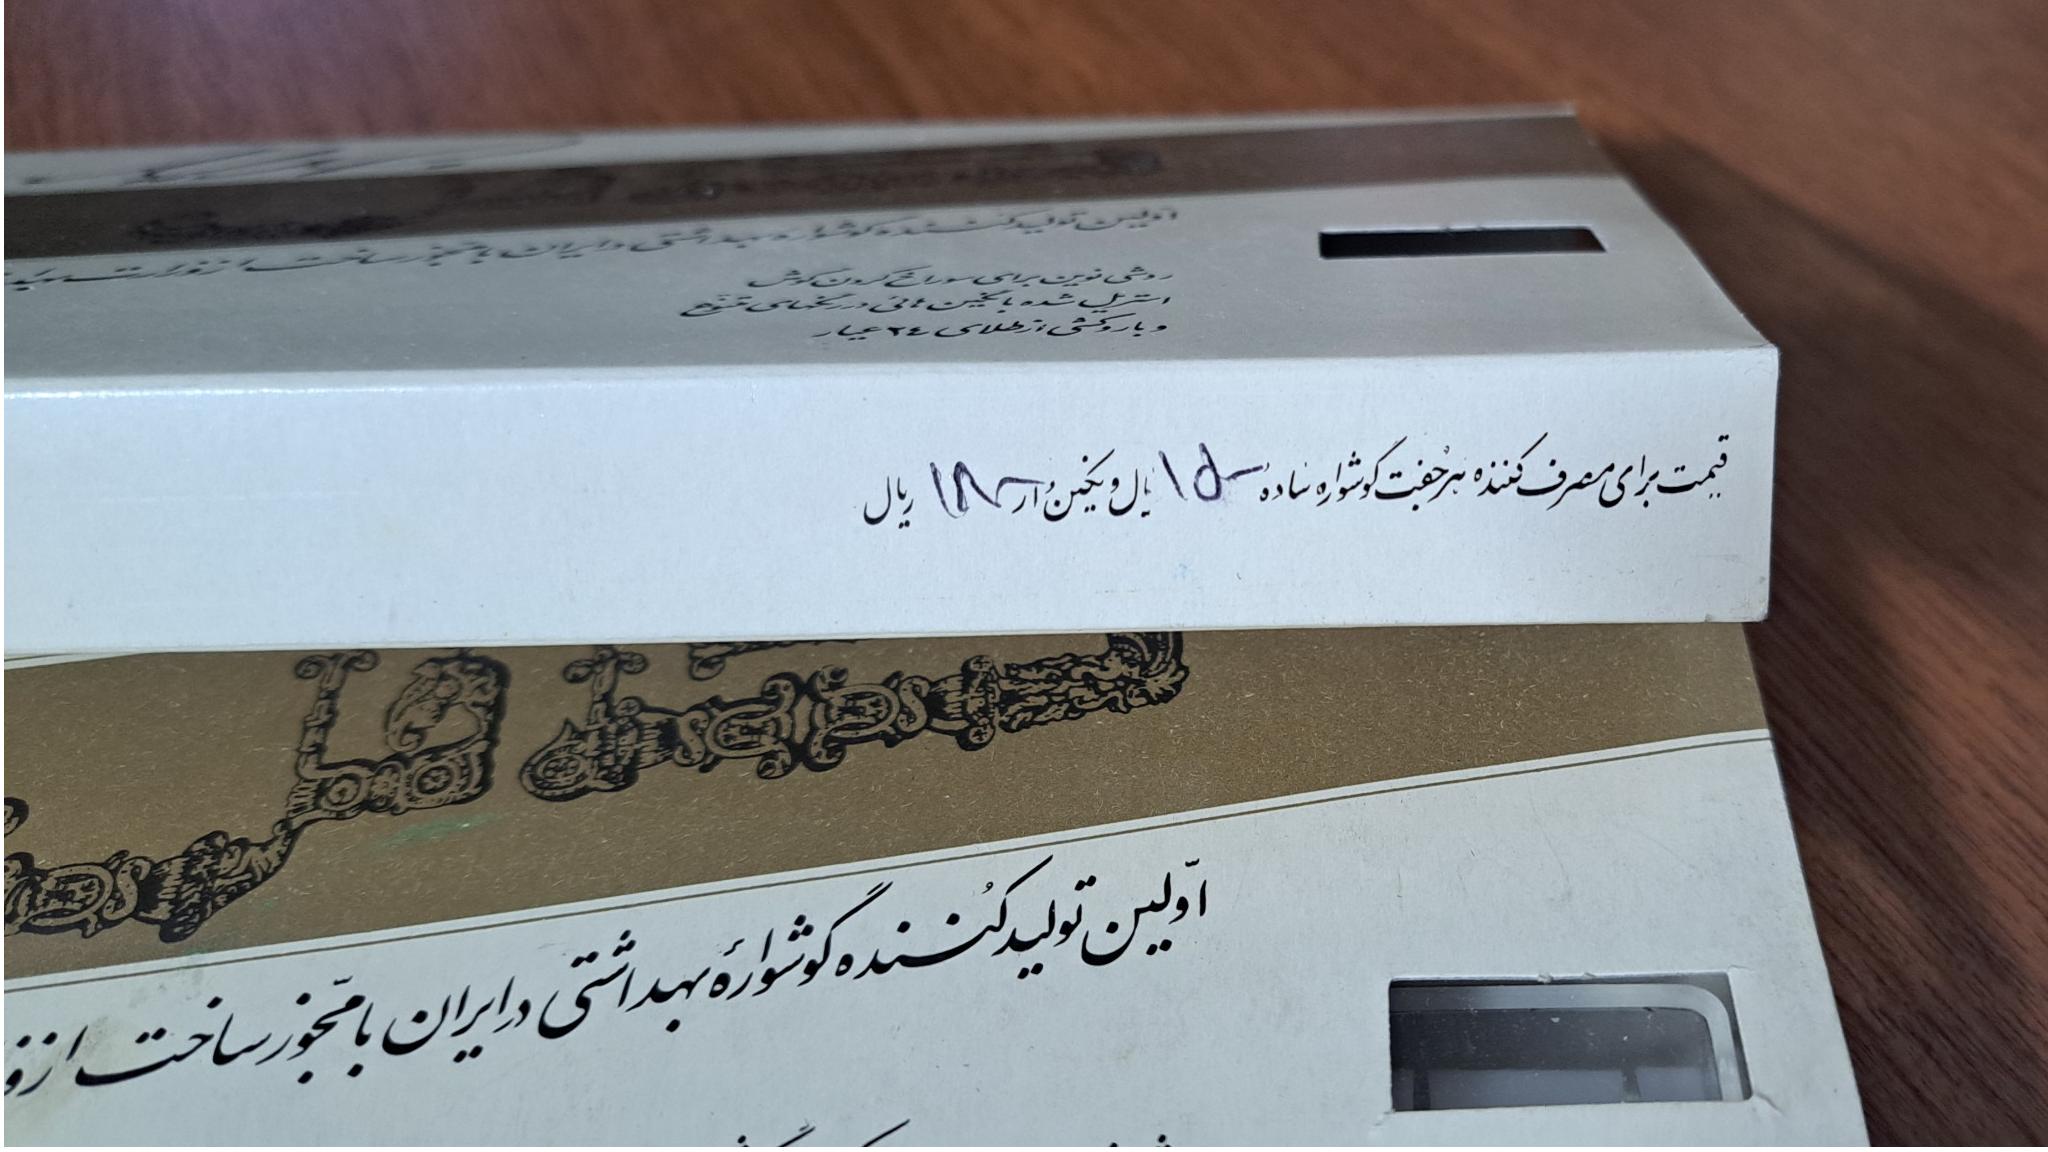 اوّلین تولید کننده گوشواره بهداشتی در ایران با مجوز ساخت از وزارت
روشی نوین برای سوراخ کردن گوش
استریل شده با نگین هائی در رنگهای متنوع
و با روکشی از طلای ۲٤ عیار
قیمت برای مصرف کننده هر جفت گوشواره ساده ریال و نگین دار ریال
اوّلین تولید کُننده گوشوارهٔ بهداشتی در ایران با مجّوز ساخت از